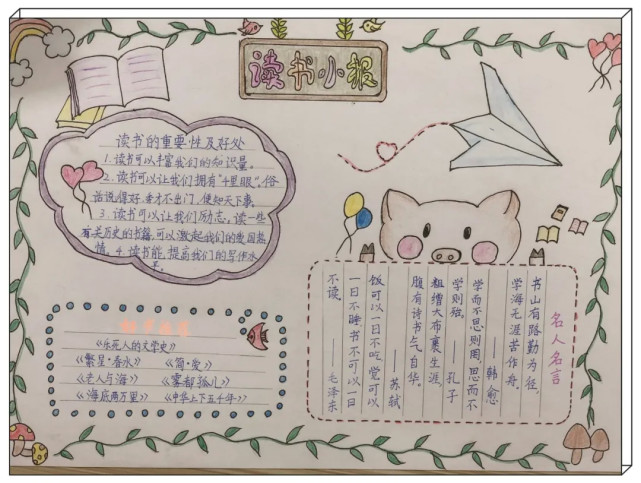 读书小报
读书的重要性及好处
1.读书可以丰富我们的知识量。
2.读书可以让我们拥有“千里眼”,俗
话说得好,秀才不出门,便知天下事。
3.读书可以让我们励志,读一些
有关历史的书籍,可以激起我们的爱国热
情。4.读书能提高我们的写作水
平。
《乐死人的文学史》
《繁星·春水》 《简·爱》
《老人与海》 《雾都孤儿》
《海底两万里》 《中华上下五千年》
名人名言
书山有路勤为径,
学海无涯苦作舟。
——韩愈
学而不思则罔,思而不
学则殆。——孔子
粗缯大布裹生涯,
腹有诗书气自华。
——苏轼
饭可以一日不吃,觉可以
一日不睡,书不可以一日
不读。——毛泽东